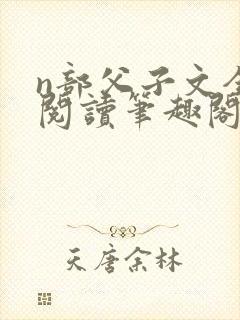 n部父子文全
閱讀筆趣閣
天唐余林